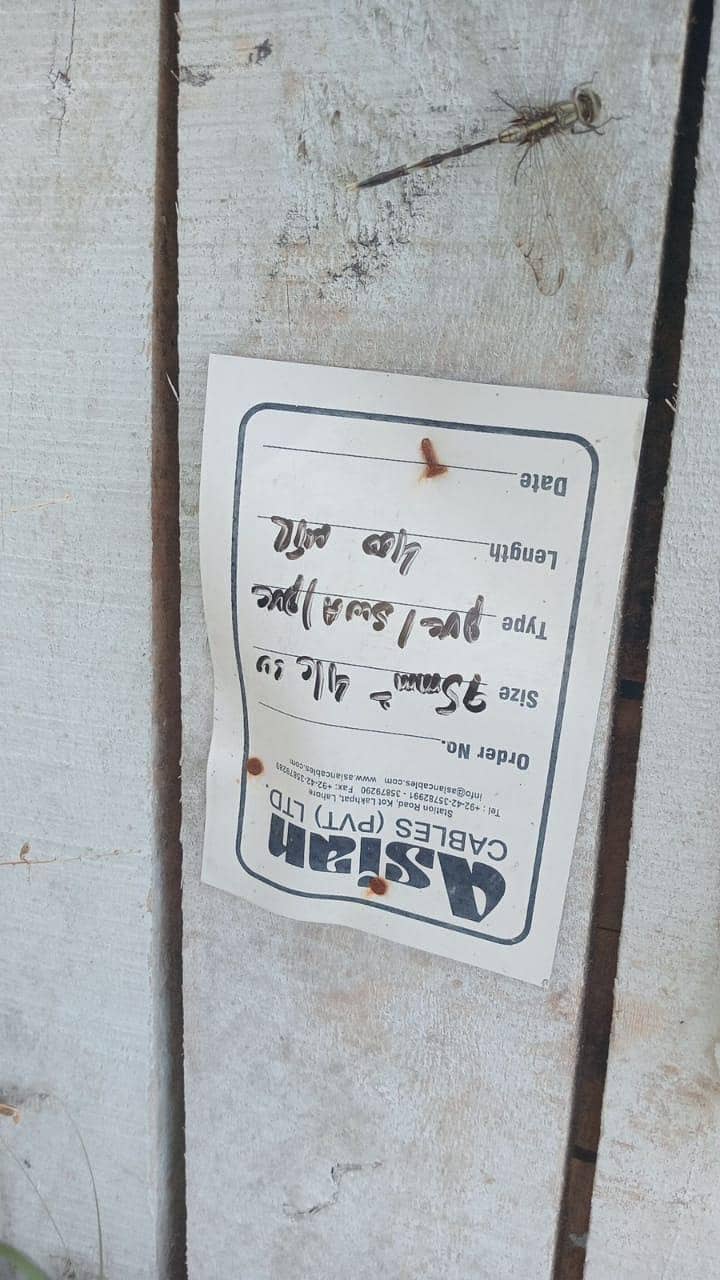 asian
CABLES (PVT) LTD.
Station Road, Kot Lakhpat, Lahore
Tel : +92-42-35782991 - 35879290 Fax: +92-42-35879289
info@asiancables.com www.asiancables.com
Order No.
Size 95mm² 4/c
Type pvc/SWA/pvc
Length 400
Date